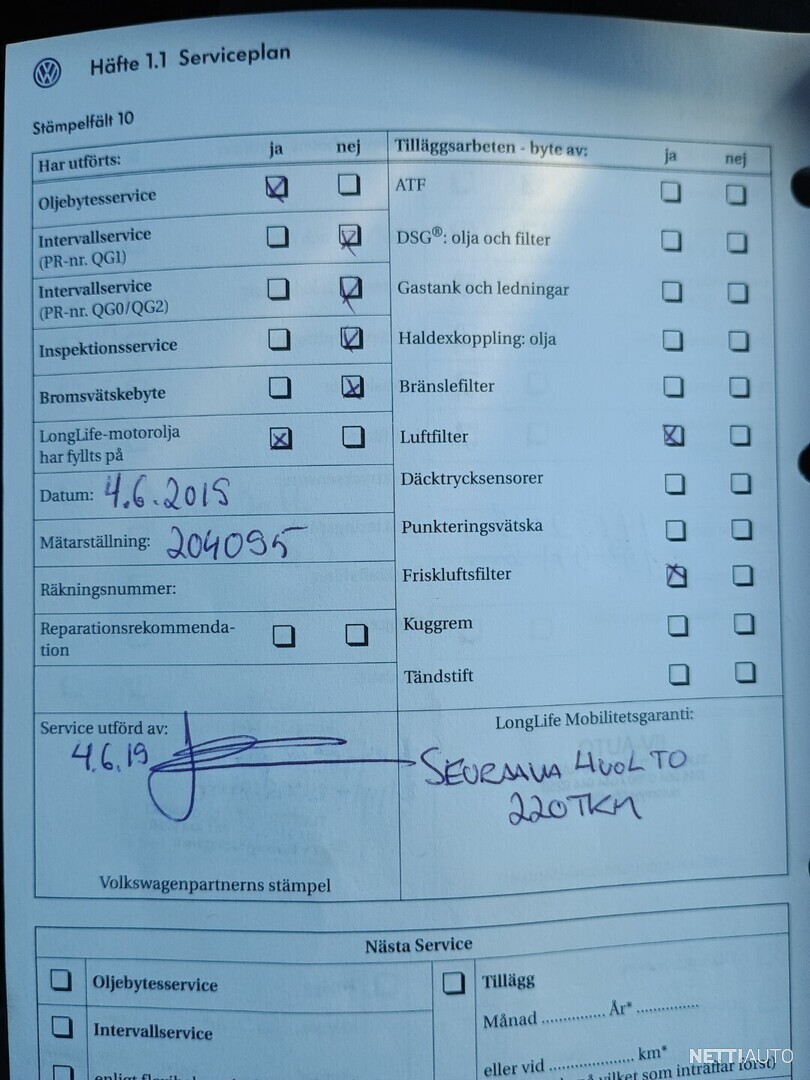 Häfte 1.1 Serviceplan
Stämpelfält 10
Har utförts: ja nej
Oljebytesservice
Intervallservice
(PR-nr. QG1)
Intervallservice
(PR-nr. QG0/QG2)
Inspektionsservice
Bromsvätskebyte
LongLife-motorolja
har fyllts på
Datum: 4.6.2019
Mätarställning: 204095
Räkningsnummer:
Reparationsrekommenda-
tion
Tilläggsarbeten - byte av: ja nej
ATF
DSG®: olja och filter
Gastank och ledningar
Haldexkoppling: olja
Bränslefilter
Luftfilter
Däcktrycksensorer
Punkteringsvätska
Friskluftsfilter
Kuggrem
Tändstift
Service utförd av:
4.6.19
Volkswagenpartnerns stämpel
LongLife Mobilitetsgaranti:
SEURAAVA HUOLTO
220TKM
Nästa Service
Oljebytesservice
Intervallservice
Tillägg
Månad .............. År* ..............
eller vid .................. km*
vilket som inträffar först)
NETTIAUTO